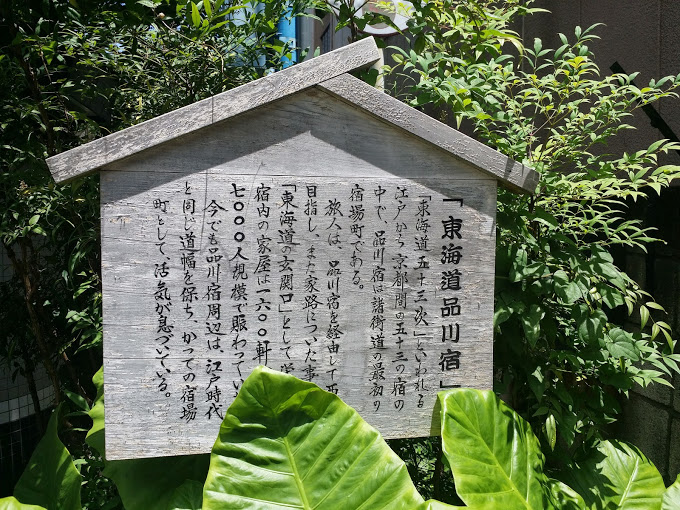 「東海道品川宿」
「東海道五十三次」といわれる
江戸から京都間の五十三の宿の
中で、品川宿は諸街道の最初の
宿場町である。
旅人は、品川宿を経由して西
目指し、また家路についた事
「東海道の玄関口」として栄
宿内の家屋は一六〇〇軒
七〇〇〇人規模で賑わってい
今でも品川宿周辺は、江戸時代
と同じ道幅を保ち、かつての宿場
町として、活気が息づいている。